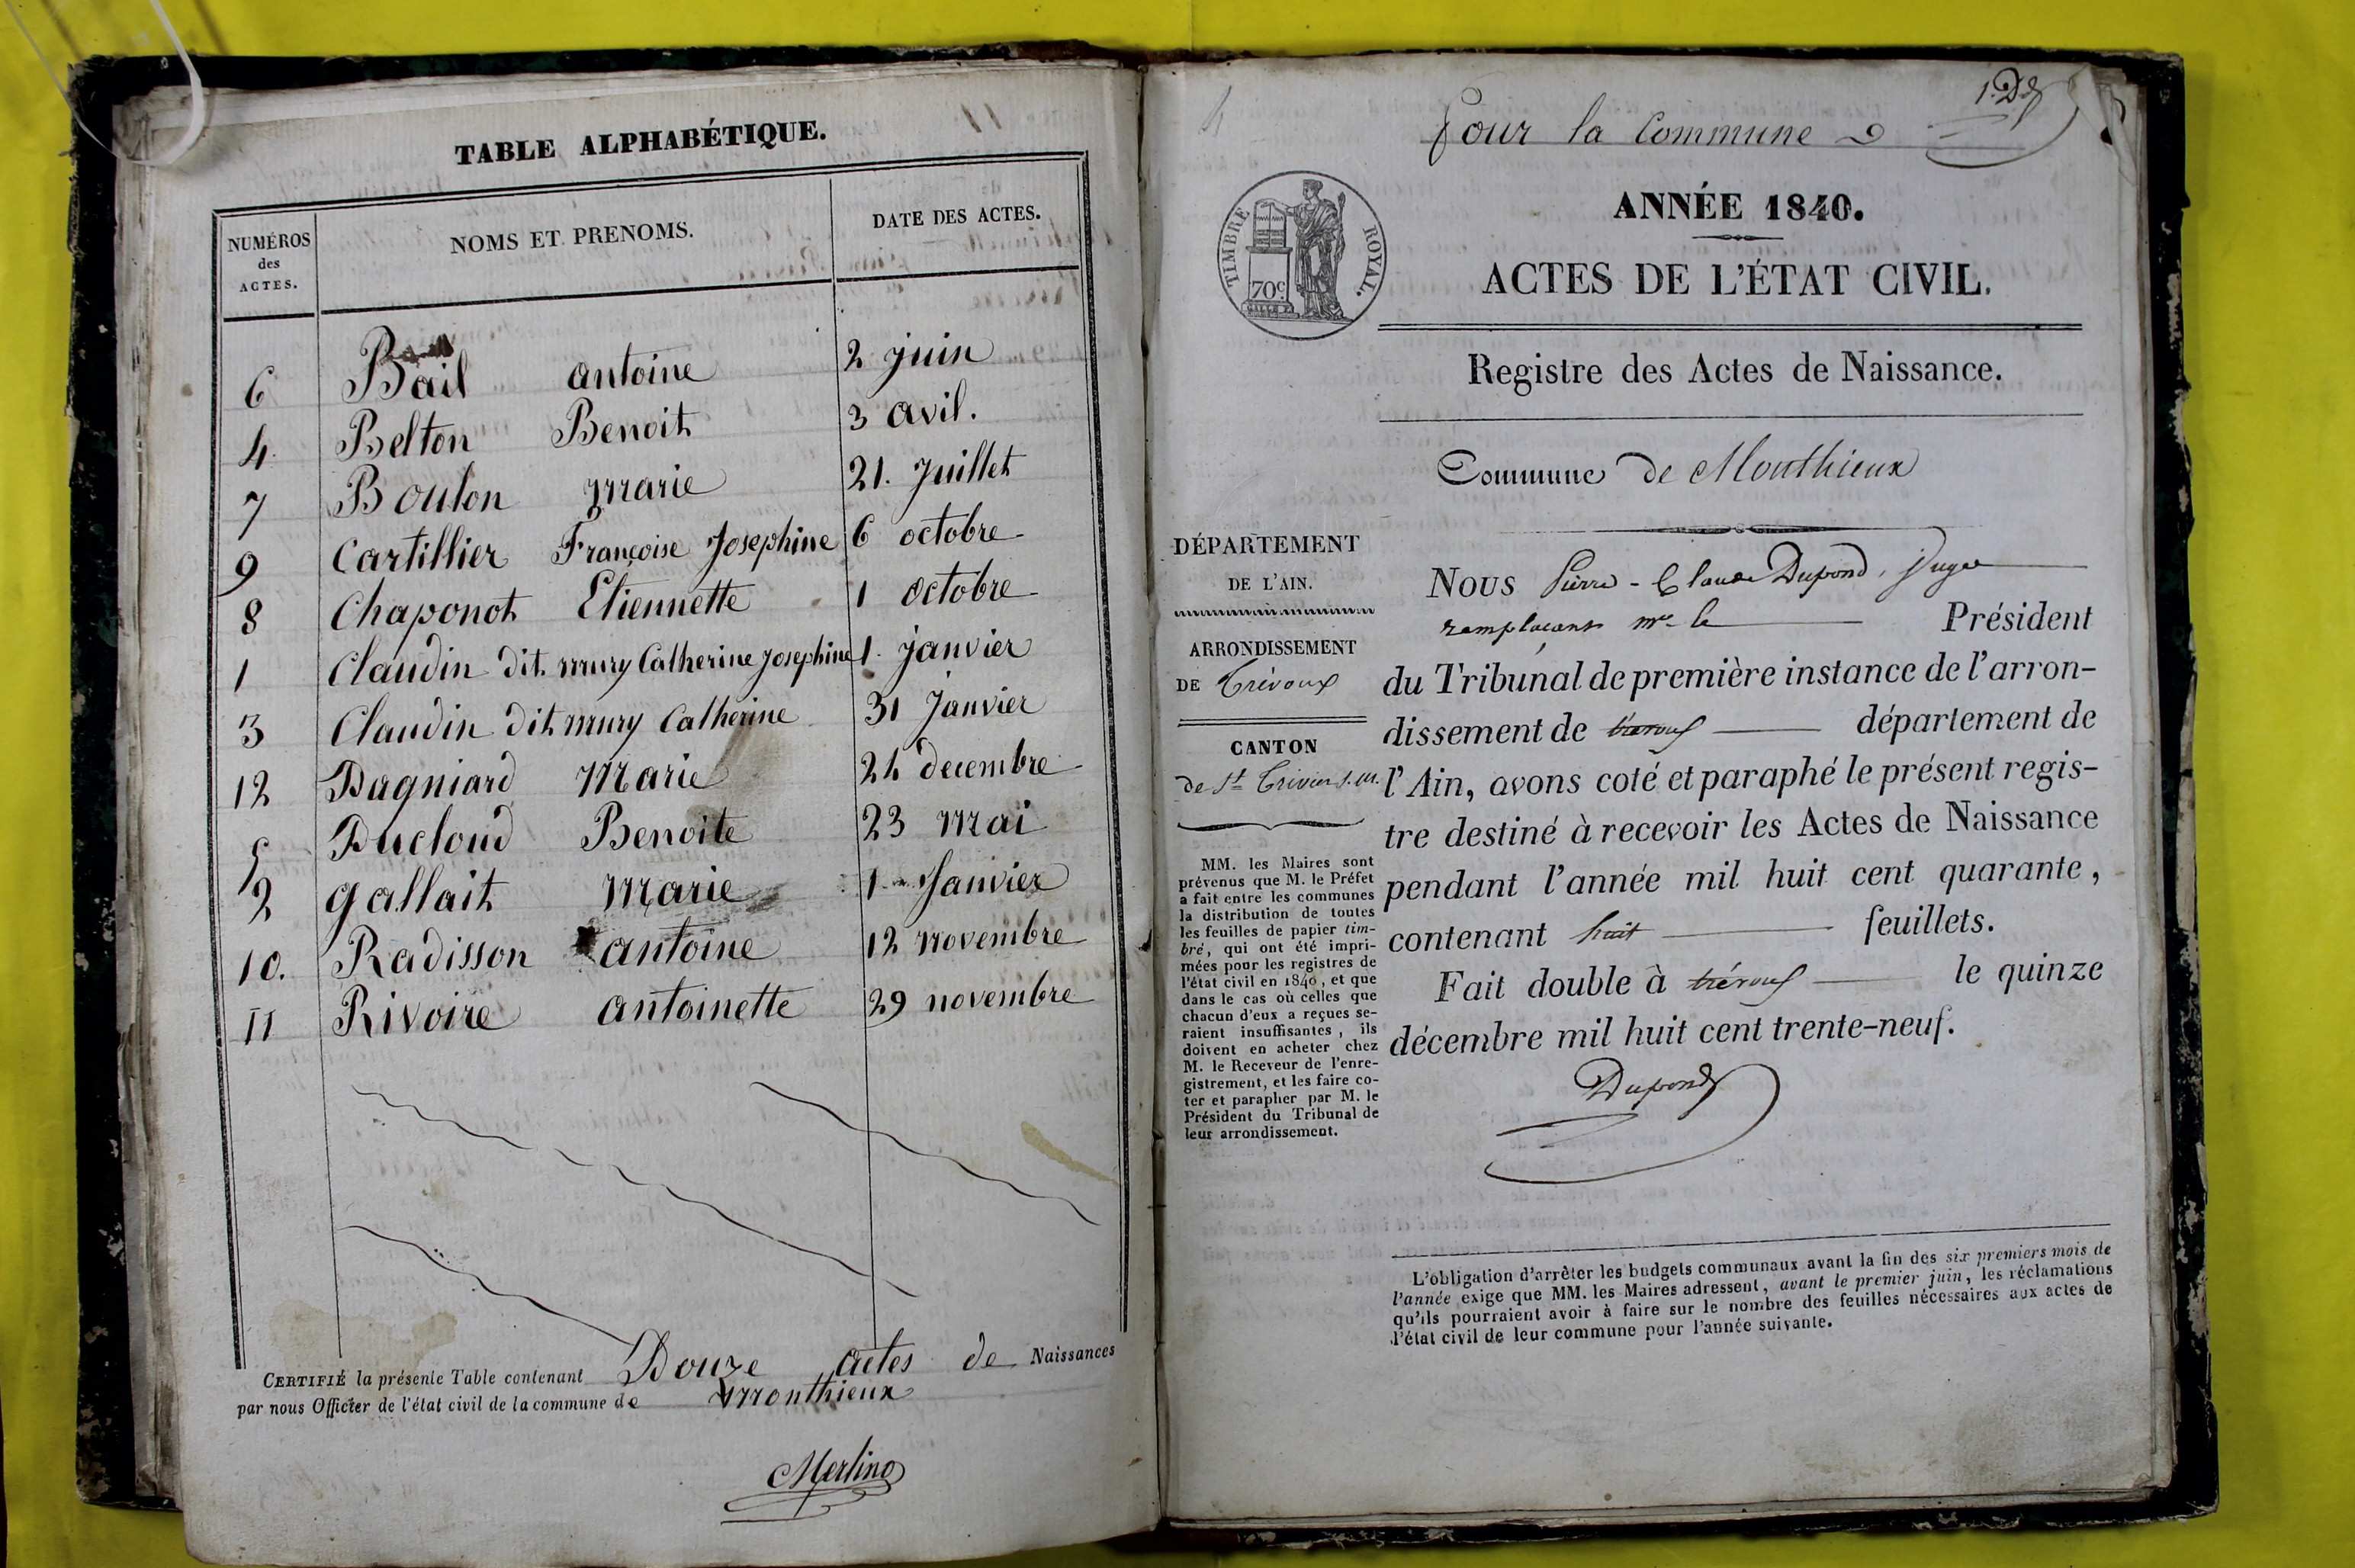 TABLE ALPHABÉTIQUE.
NUMÉROS des ACTES. NOMS ET PRENOMS. DATE DES ACTES.
6 Bail antoine 2 juin
4 Belton Benoit 3 avil.
7 Boulon marie 21. Juillet
9 Cartillier Françoise Josephine 6 octobre
8 Chaponot Etiennette 1 octobre
1 Claudin dit. mury Catherine Josephine 1. janvier
3 Claudin dit mury Catherine 31 Janvier
12 Dagniard Marie 24 decembre
5 Ducloud Benoite 23 mai
2 gallait marie 1 Janvier
10. Radisson antoine 12 novembre
11 Rivoire antoinette 29 novembre
CERTIFIÉ la présente Table contenant Douze actes de Naissances
par nous Officier de l'état civil de la commune de monthieux
Merlino
1. Dd
Pour la Commune
ANNÉE 1840.
TIMBRE ROYAL.
70c
ACTES DE L'ÉTAT CIVIL.
Registre des Actes de Naissance.
Commune de Monthieux
DÉPARTEMENT
DE L'AIN.
ARRONDISSEMENT
DE Trévoux
CANTON
de St Trivier s. m.
MM. les Maires sont
prévenus que M. le Préfet
a fait entre les communes
la distribution de toutes
les feuilles de papier tim-
bré, qui ont été impri-
mées pour les registres de
l'état civil en 1840, et que
dans le cas où celles que
chacun d'eux a reçues se-
raient insuffisantes, ils
doivent en acheter chez
M. le Receveur de l'enre-
gistrement, et les faire co-
ter et parapher par M. le
Président du Tribunal de
leur arrondissement.
Nous Pierre-Claude Dupond, Juge
remplaçant mr. le Président
du Tribunal de première instance de l'arron-
dissement de trévoux département de
l'Ain, avons coté et paraphé le présent regis-
tre destiné à recevoir les Actes de Naissance
pendant l'année mil huit cent quarante,
contenant huit feuillets.
Fait double à trévoux le quinze
décembre mil huit cent trente-neuf.
Dupond
L'obligation d'arrêter les budgets communaux avant la fin des six premiers mois de
l'année exige que MM. les Maires adressent, avant le premier juin, les réclamations
qu'ils pourraient avoir à faire sur le nombre des feuilles nécessaires aux actes de
l'état civil de leur commune pour l'année suivante.